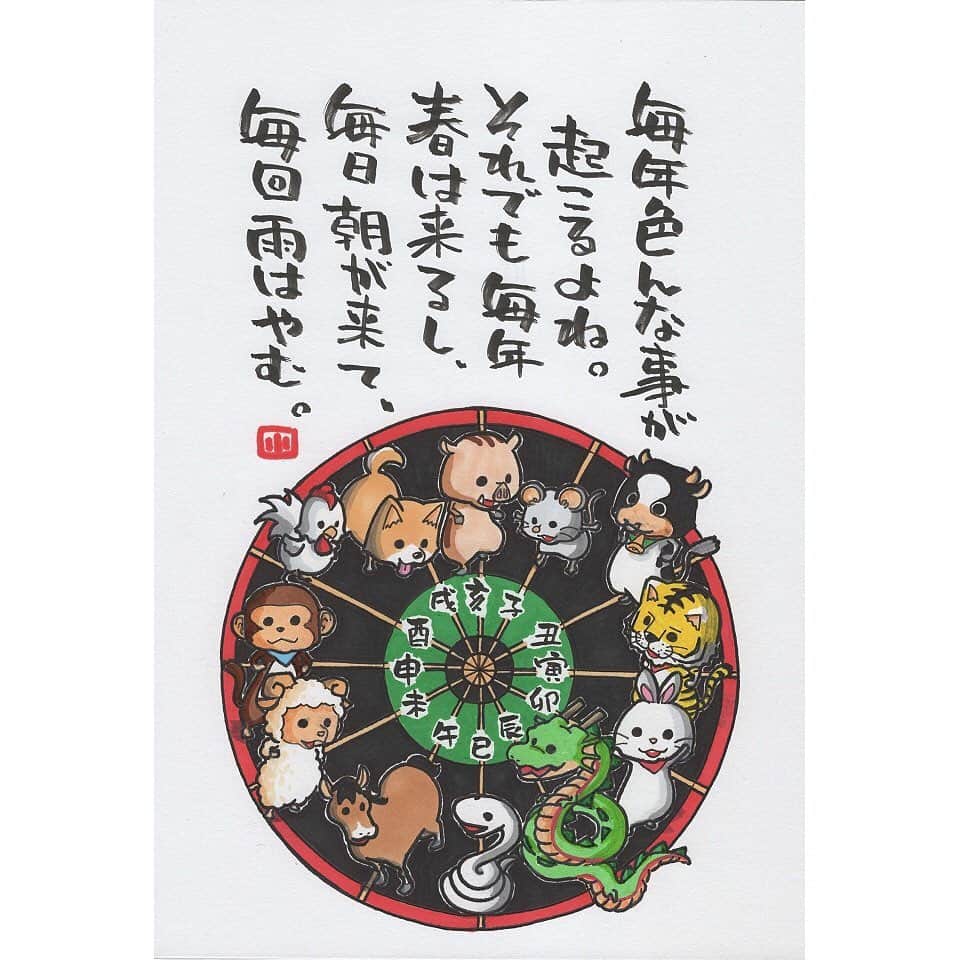 毎年色んな事が
起こるよね。
それでも毎年
春は来るし、
毎日朝が来て、
毎回雨はやむ。
小
子
丑
寅
卯
辰
巳
午
未
申
酉
戌
亥